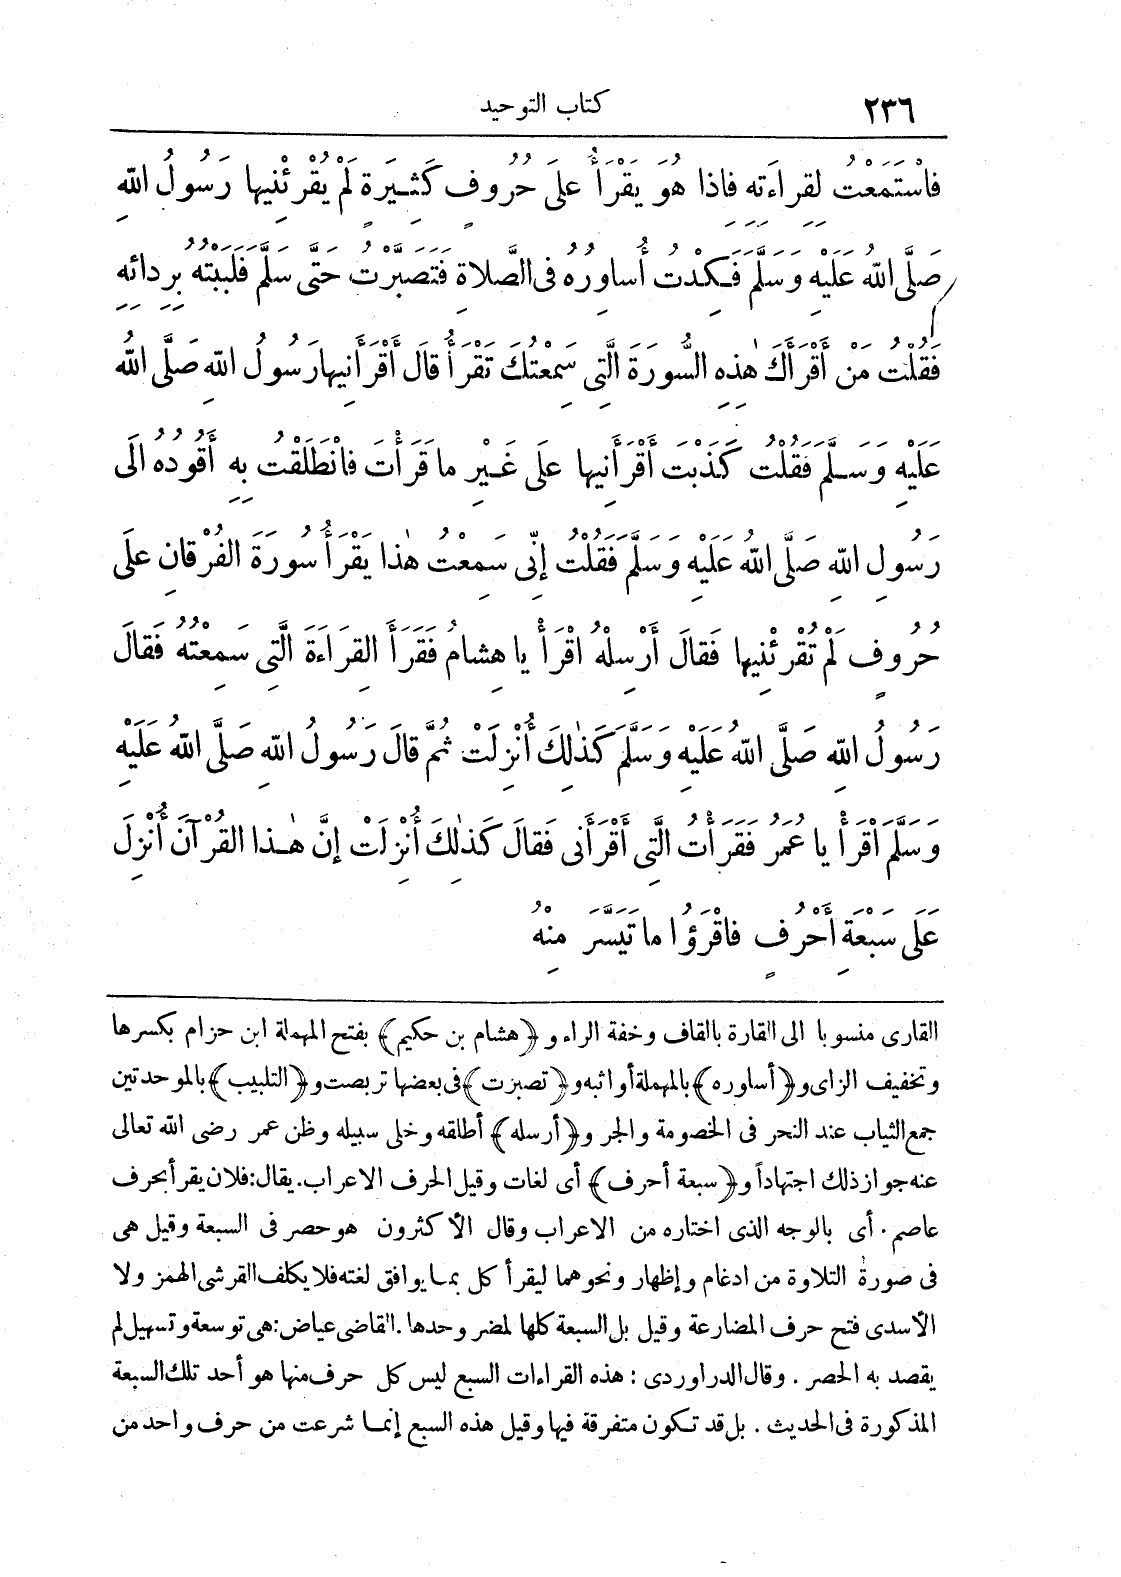 ٢٣٦ كتاب التوحيد
فَاسْتَمَعْتُ لِقِرَاءَتِهِ فَاذَا هُوَ يَقْرَأُ عَلَى حُرُوفٍ كَثِيرَةٍ لَمْ يُقْرِئْنِيهَا رَسُولُ اللّٰهِ
صَلَّى اللّٰهُ عَلَيْهِ وَسَلَّمَ فَكِدْتُ أُسَاوِرُهُ فِى الصَّلَاةِ فَتَصَبَّرْتُ حَتَّى سَلَّمَ فَلَبَبْتُهُ بِرِدَائِهِ
فَقُلْتُ مَنْ أَقْرَأَكَ هٰذِهِ السُّورَةَ الَّتِى سَمِعْتُكَ تَقْرَأُ قَالَ أَقْرَأَنِيهَا رَسُولُ اللّٰهِ صَلَّى اللّٰهُ
عَلَيْهِ وَسَلَّمَ فَقُلْتُ كَذَبْتَ أَقْرَأَنِيهَا عَلَى غَيْرِ مَا قَرَأْتَ فَانْطَلَقْتُ بِهِ أَقُودُهُ الَى
رَسُولِ اللّٰهِ صَلَّى اللّٰهُ عَلَيْهِ وَسَلَّمَ فَقُلْتُ إِنِّى سَمِعْتُ هٰذَا يَقْرَأُ سُورَةَ الفُرْقَانِ عَلَى
حُرُوفٍ لَمْ تُقْرِئْنِيهَا فَقَالَ أَرْسِلْهُ اقْرَأْ يَا هِشَامُ فَقَرَأَ القِرَاءَةَ الَّتِى سَمِعْتُهُ فَقَالَ
رَسُولُ اللّٰهِ صَلَّى اللّٰهُ عَلَيْهِ وَسَلَّمَ كَذٰلِكَ أُنْزِلَتْ ثُمَّ قَالَ رَسُولُ اللّٰهِ صَلَّى اللّٰهُ عَلَيْهِ
وَسَلَّمَ اقْرَأْ يَا عُمَرُ فَقَرَأْتُ الَّتِى أَقْرَأَنِى فَقَالَ كَذٰلِكَ أُنْزِلَتْ إِنَّ هٰذَا القُرْآنَ أُنْزِلَ
عَلَى سَبْعَةِ أَحْرُفٍ فَاقْرَؤُا مَا تَيَسَّرَ مِنْهُ
القارى منسوبا الى القارة بالقاف وخفة الراء و ﴿هشام بن حكيم﴾ بفتح المهملة ابن حزام بكسرها
وتخفيف الزاى و﴿أساوره﴾ بالمهملة أواثبه و﴿تصبرت﴾ فى بعضها تربصت و﴿التلبيب﴾ بالموحدتين
جمع الثياب عند النحر فى الخصومة والجر و﴿أرسله﴾ أطلقه وخلى سبيله وظن عمر رضى الله تعالى
عنه جواز ذلك اجتهاداً و﴿سبعة أحرف﴾ أى لغات وقيل الحرف الاعراب. يقال: فلان يقرأ بحرف
عاصم. أى بالوجه الذى اختاره من الاعراب وقال الأكثرون هو حصر فى السبعة وقيل هى
فى صورة التلاوة من ادغام وإظهار ونحوهما ليقرأ كل بما يوافق لغته فلا يكلف القرشى الهمز ولا
الأسدى فتح حرف المضارعة وقيل بل السبعة كلها لمضر وحدها. القاضى عياض: هى توسعة وتسهيل لم
يقصد به الحصر. وقال الدراوردى: هذه القراءات السبع ليس كل حرف منها هو أحد تلك السبعة
المذكورة فى الحديث. بل قد تكون متفرقة فيها وقيل هذه السبع إنما شرعت من حرف واحد من